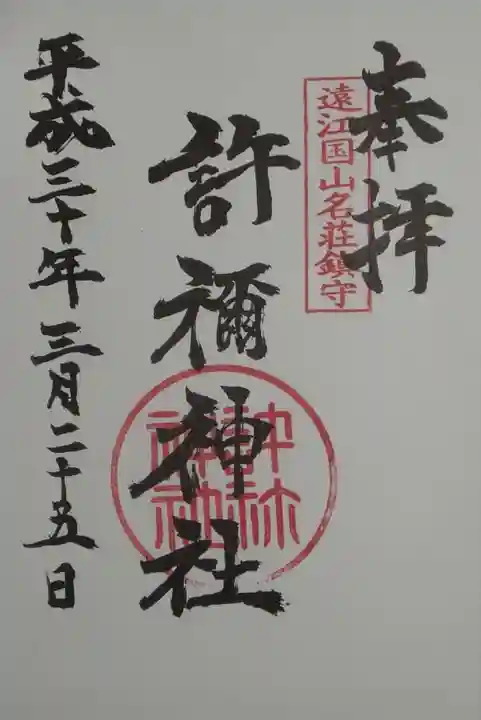 奉拝
遠江国山名荘鎮守
許禰神社
許禰神社
平成三十年三月二十五日